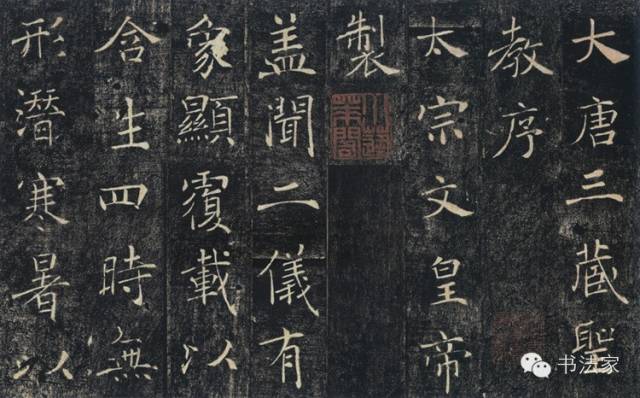 大唐三藏聖
教序
太宗文皇帝
製
小蓬萊閣
盖聞二儀有
象顯覆載以
含生四時無
形潛寒暑以
书法家